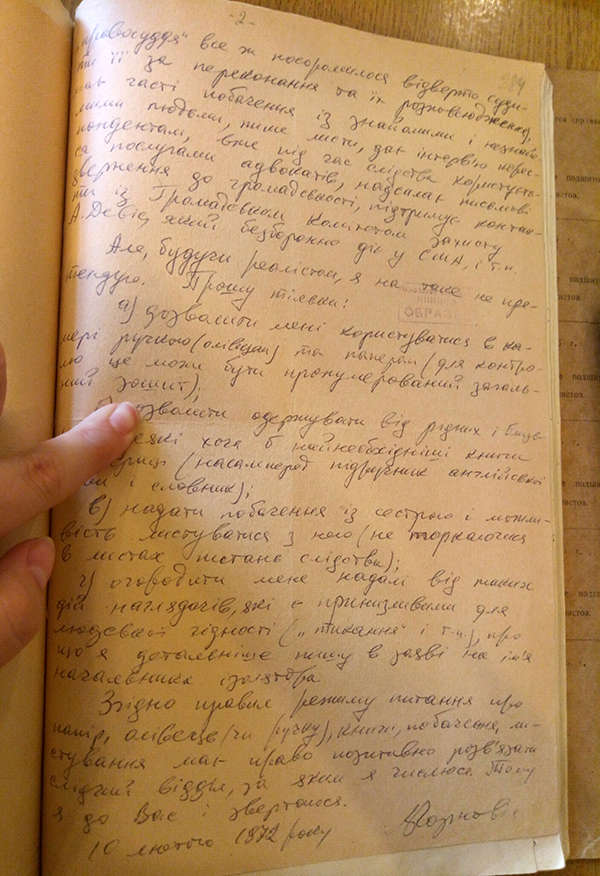 -2-
„правосуддя" все ж посоромилося відверто суди-
ти її за переконання та їх розповсюдження,
має часті побачення із знайомими і незнайо-
мими людьми, пише листи, дає інтерв'ю корес-
пондентам, вже під час слідства користуєть-
ся послугами адвокатів, надсилає письмові
звернення до громадськості, підтримує контак-
ти із Громадським Комітетом захисту
А. Девіс, який безборонно діє у США, і т.п.
Але, будучи реалістом, я на таке не пре-
тендую. Прошу тільки:
ОБРАЗ
а) дозволити мені користуватися в ка-
мері ручкою (олівцем) та папером (для контро-
лю це може бути пронумерований загаль-
ний зошит);
одержувати від рідних і
які хоча б найнеобхідніші книги
(насамперед підручник англійської
і словник);
в) надати побачення із сестрою і можли-
вість листуватися з нею (не торкаючися
в листах питань слідства);
г) огородити мене надалі від таких
дій наглядачів, які є принизливими для
людської гідності („тикання" і т.п.), про
що я детальніше пишу в заяві на ім'я
начальника ізолятора.
Згідно правил режиму питання про
папір, олівець (чи ручку), книги, побачення, ли-
стування має право позитивно розв'язати
слідчий відділ, за яким я числюся. Тому
я до Вас і звертаюся.
10 лютого 1972 року